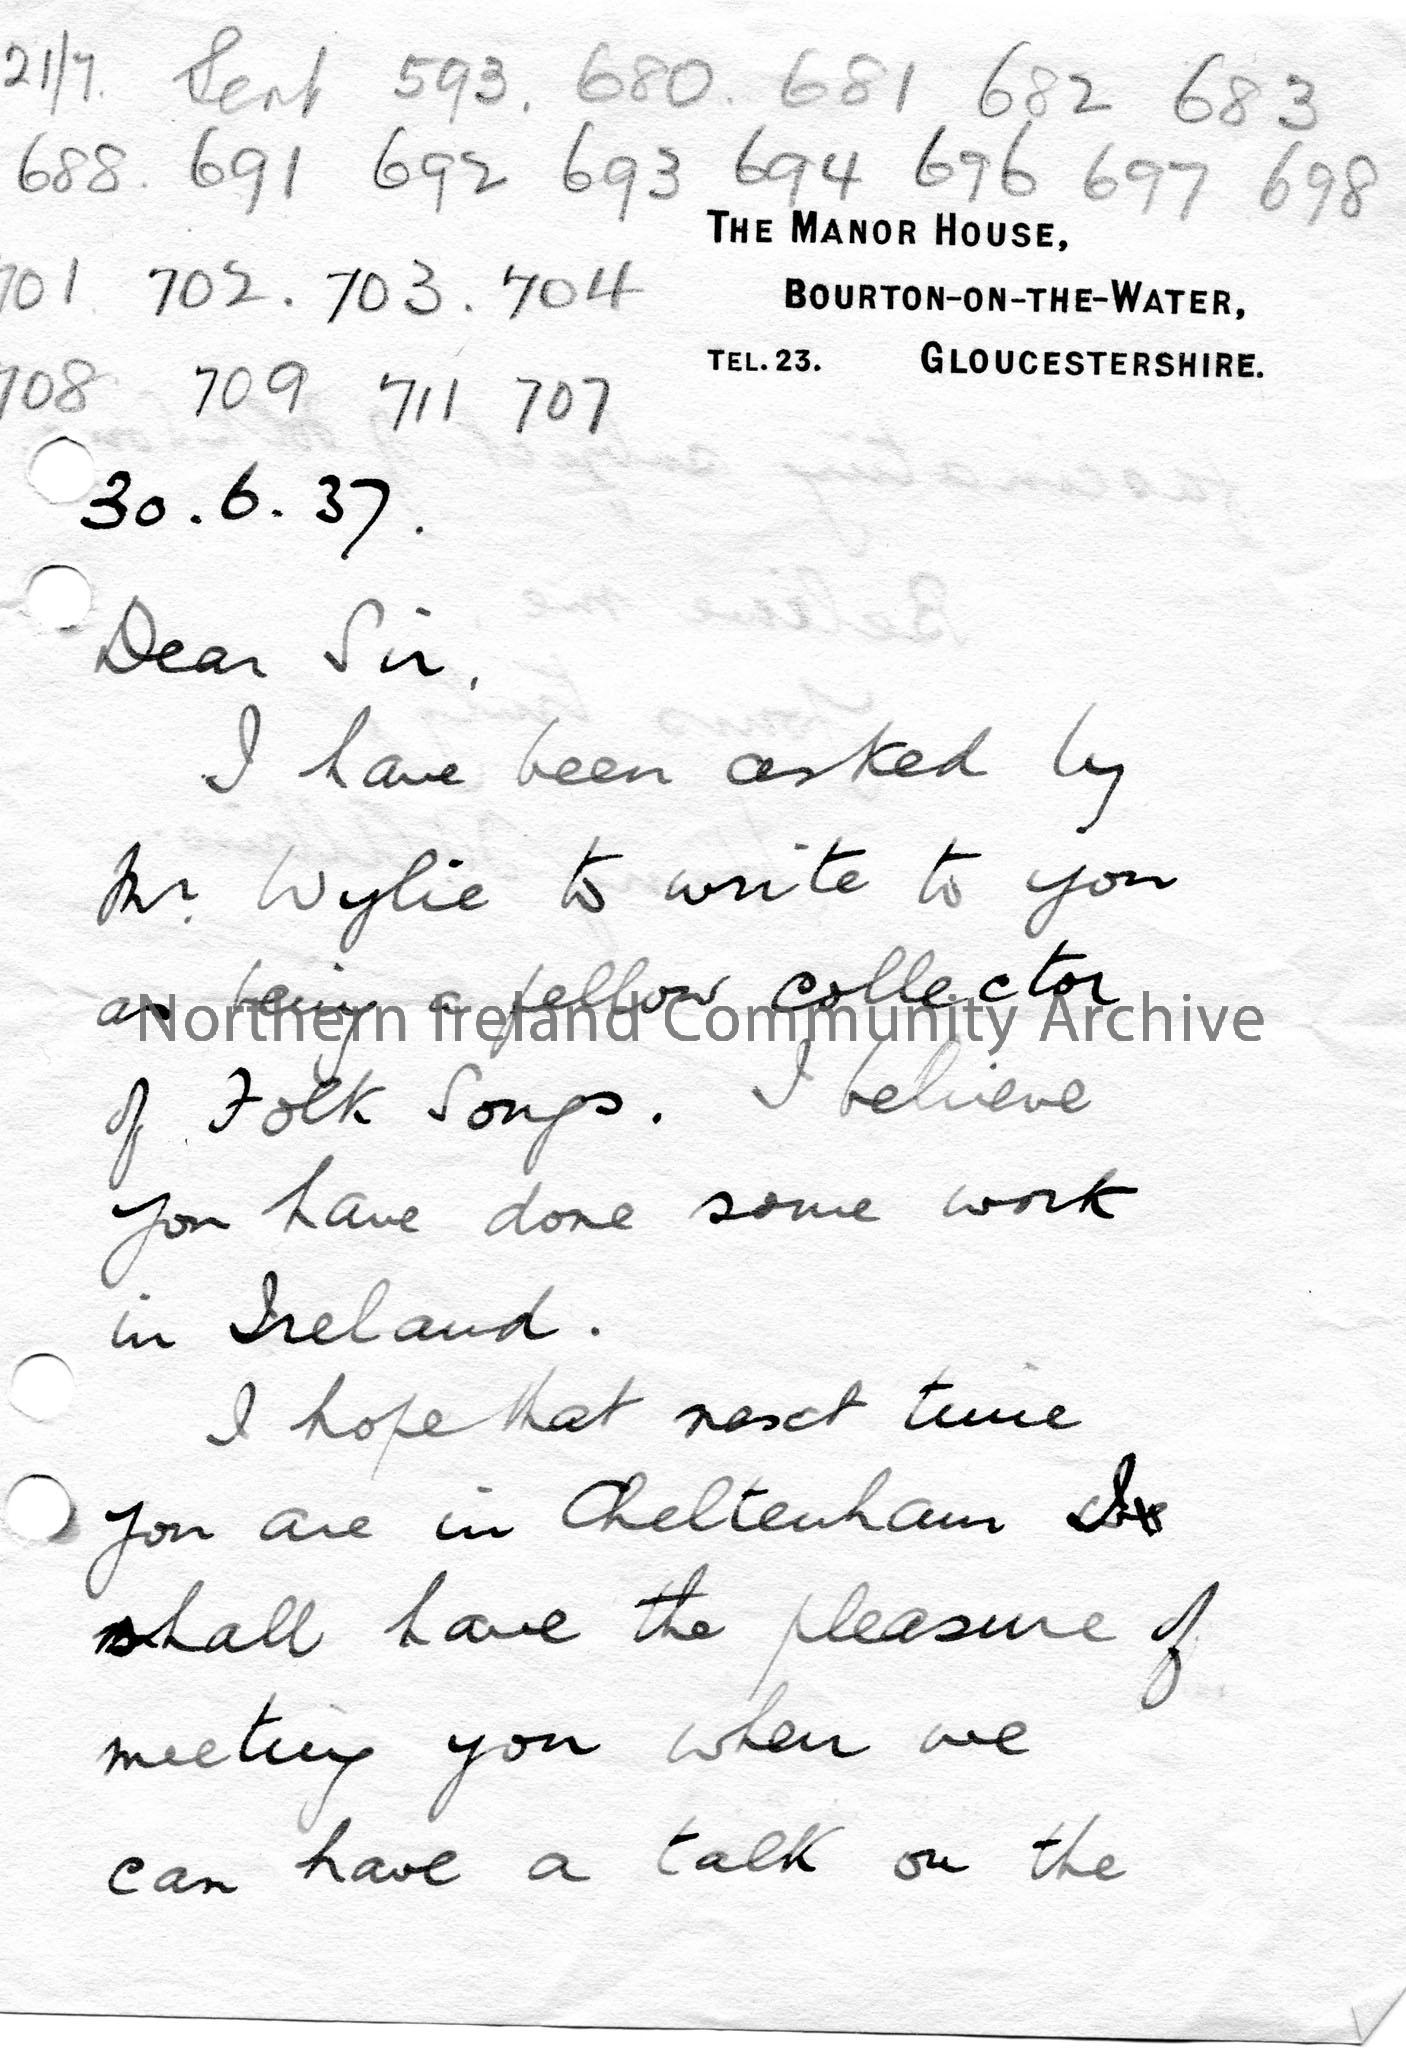 21/7. Sent 593. 680. 681 682 683
688. 691 692 693 694 696 697 698
701 702. 703. 704
708 709 711 707
THE MANOR HOUSE,
BOURTON-ON-THE-WATER,
TEL. 23. GLOUCESTERSHIRE.
30.6.37.
Dear Sir,
I have been asked by
Mr. Wylie to write to you
as being a fellow collector
of Folk Songs. I believe
you have done some work
in Ireland.
I hope that next time
you are in Cheltenham I
shall have the pleasure of
meeting you when we
can have a talk on the
Northern Ireland Community Archive